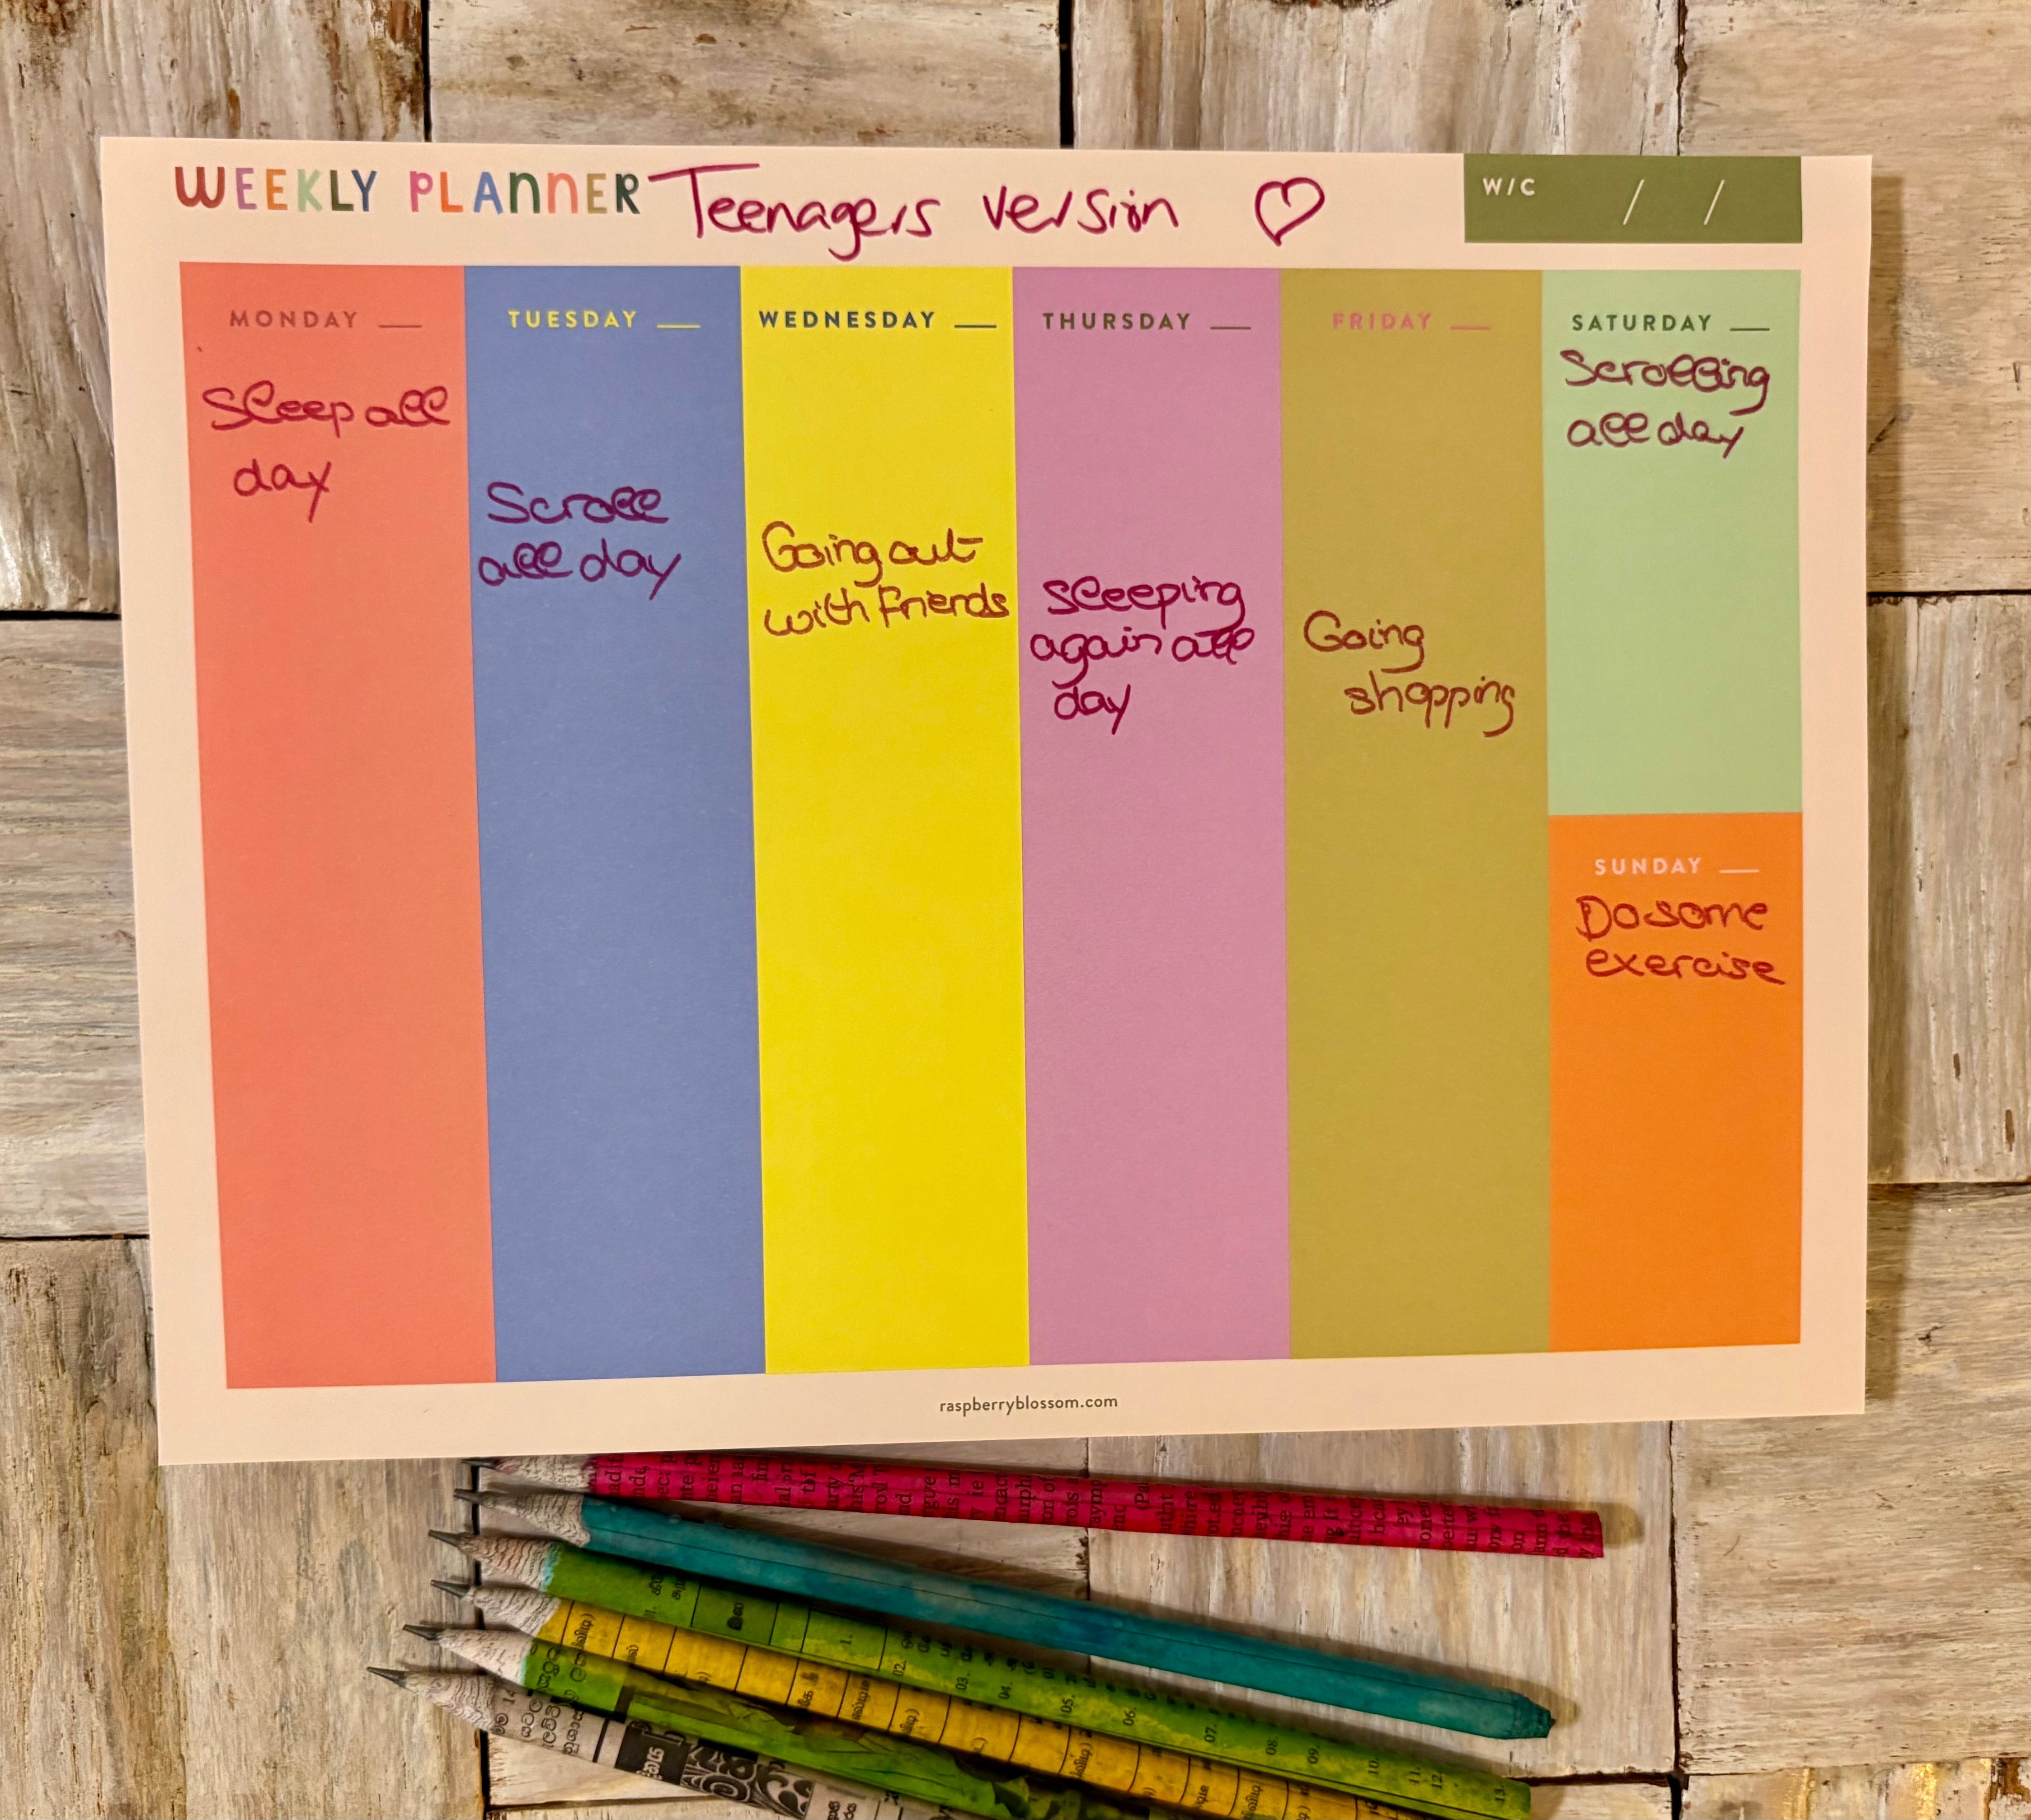 WEEKLY PLANNER Teenagers version
W/C / /
MONDAY
Sleep all
day
TUESDAY
Scroll
all day
WEDNESDAY
Going out
with friends
THURSDAY
sleeping
again all
day
FRIDAY
Going
shopping
SATURDAY
Scrolling
all day
SUNDAY
Do some
exercise
raspberryblossom.com